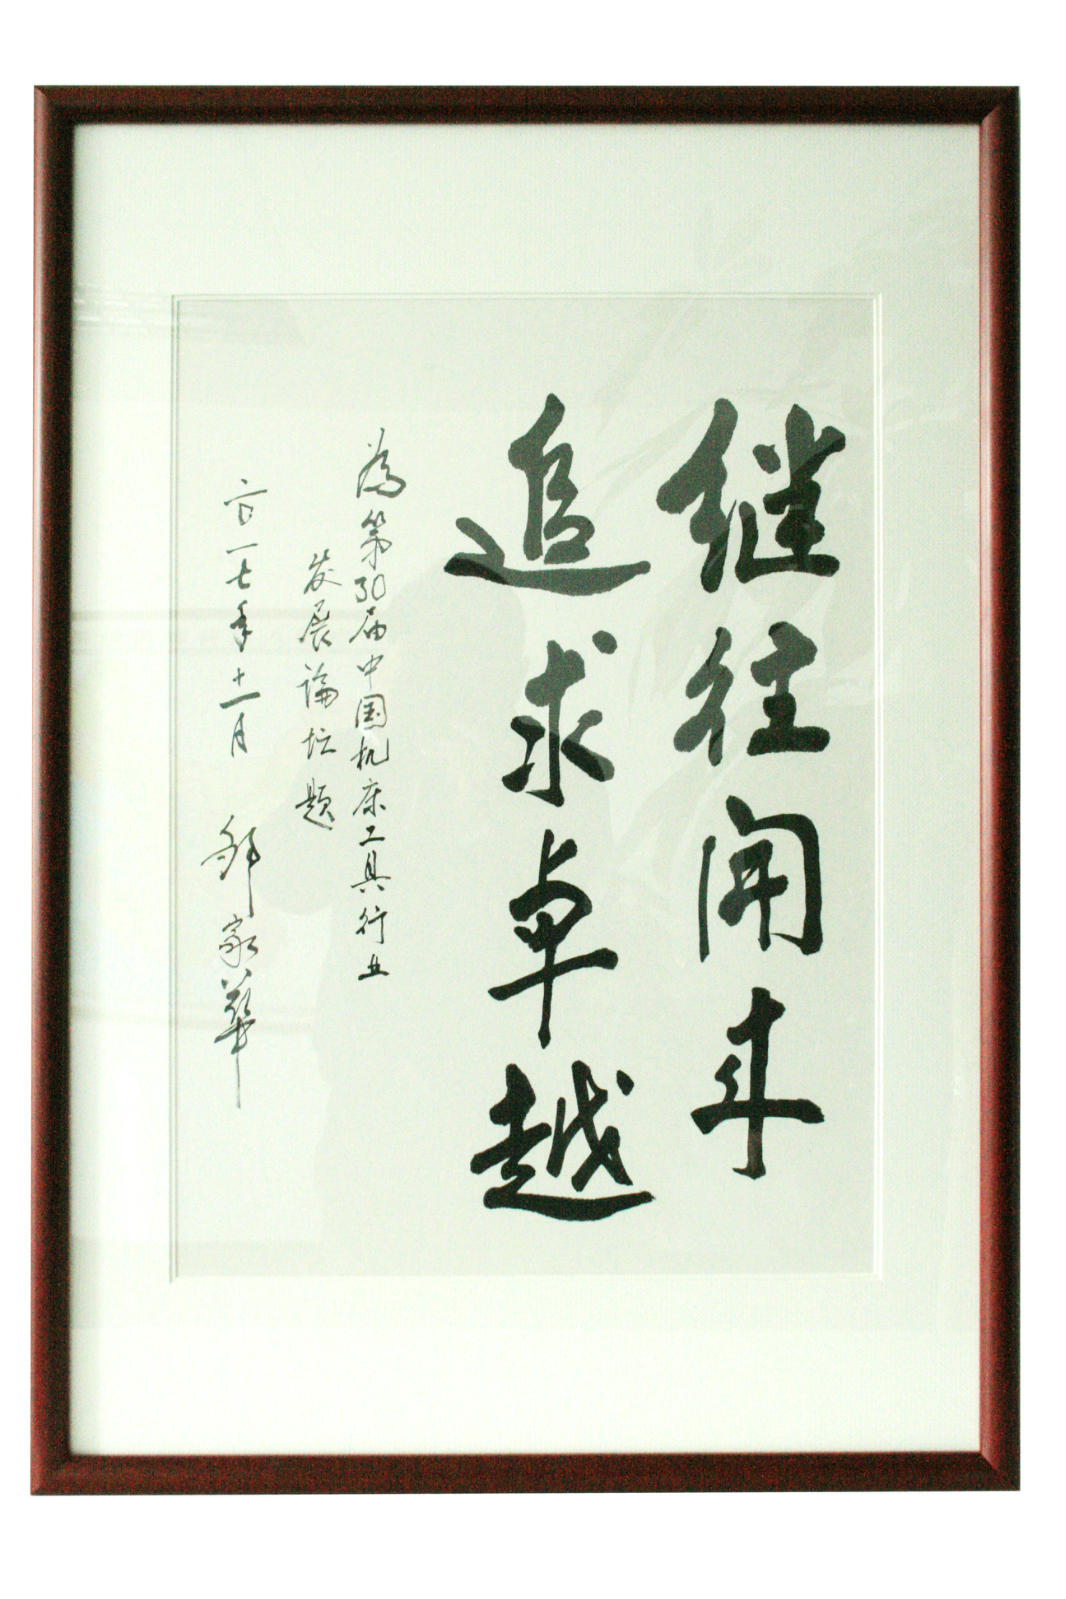 继往開来
追求卓越
為第30届中国机床工具行业
发展論坛题
二〇一七年十一月 邹家華